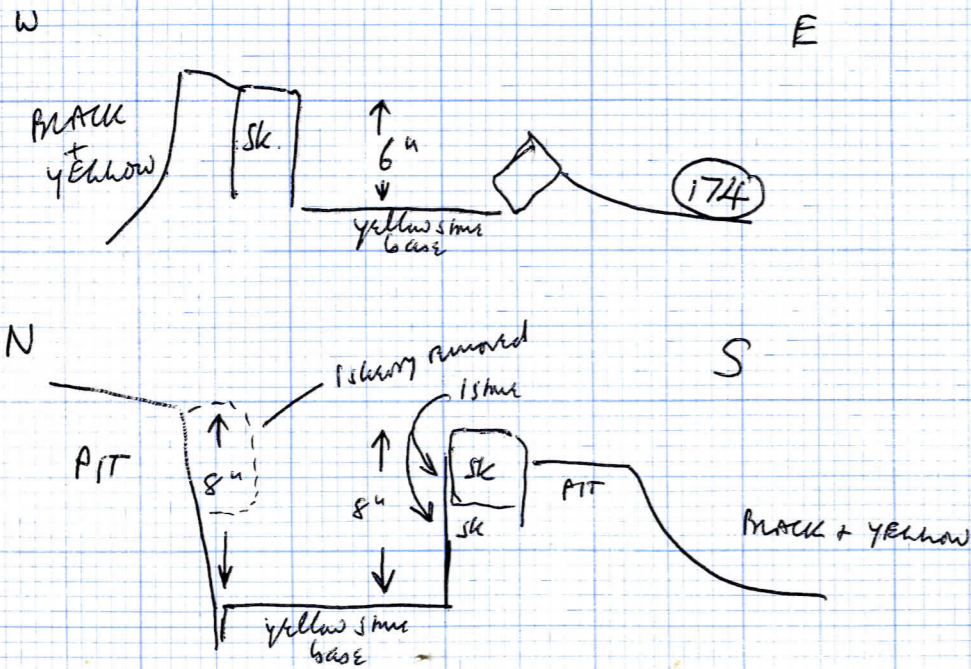 W
E
BLACK
+
YELLOW
SK.
6"
174
yellow stone
base
N
S
1 skerry removed
1 stone
PIT
8"
8"
SK
SK
PIT
BLACK + YELLOW
yellow stone
base